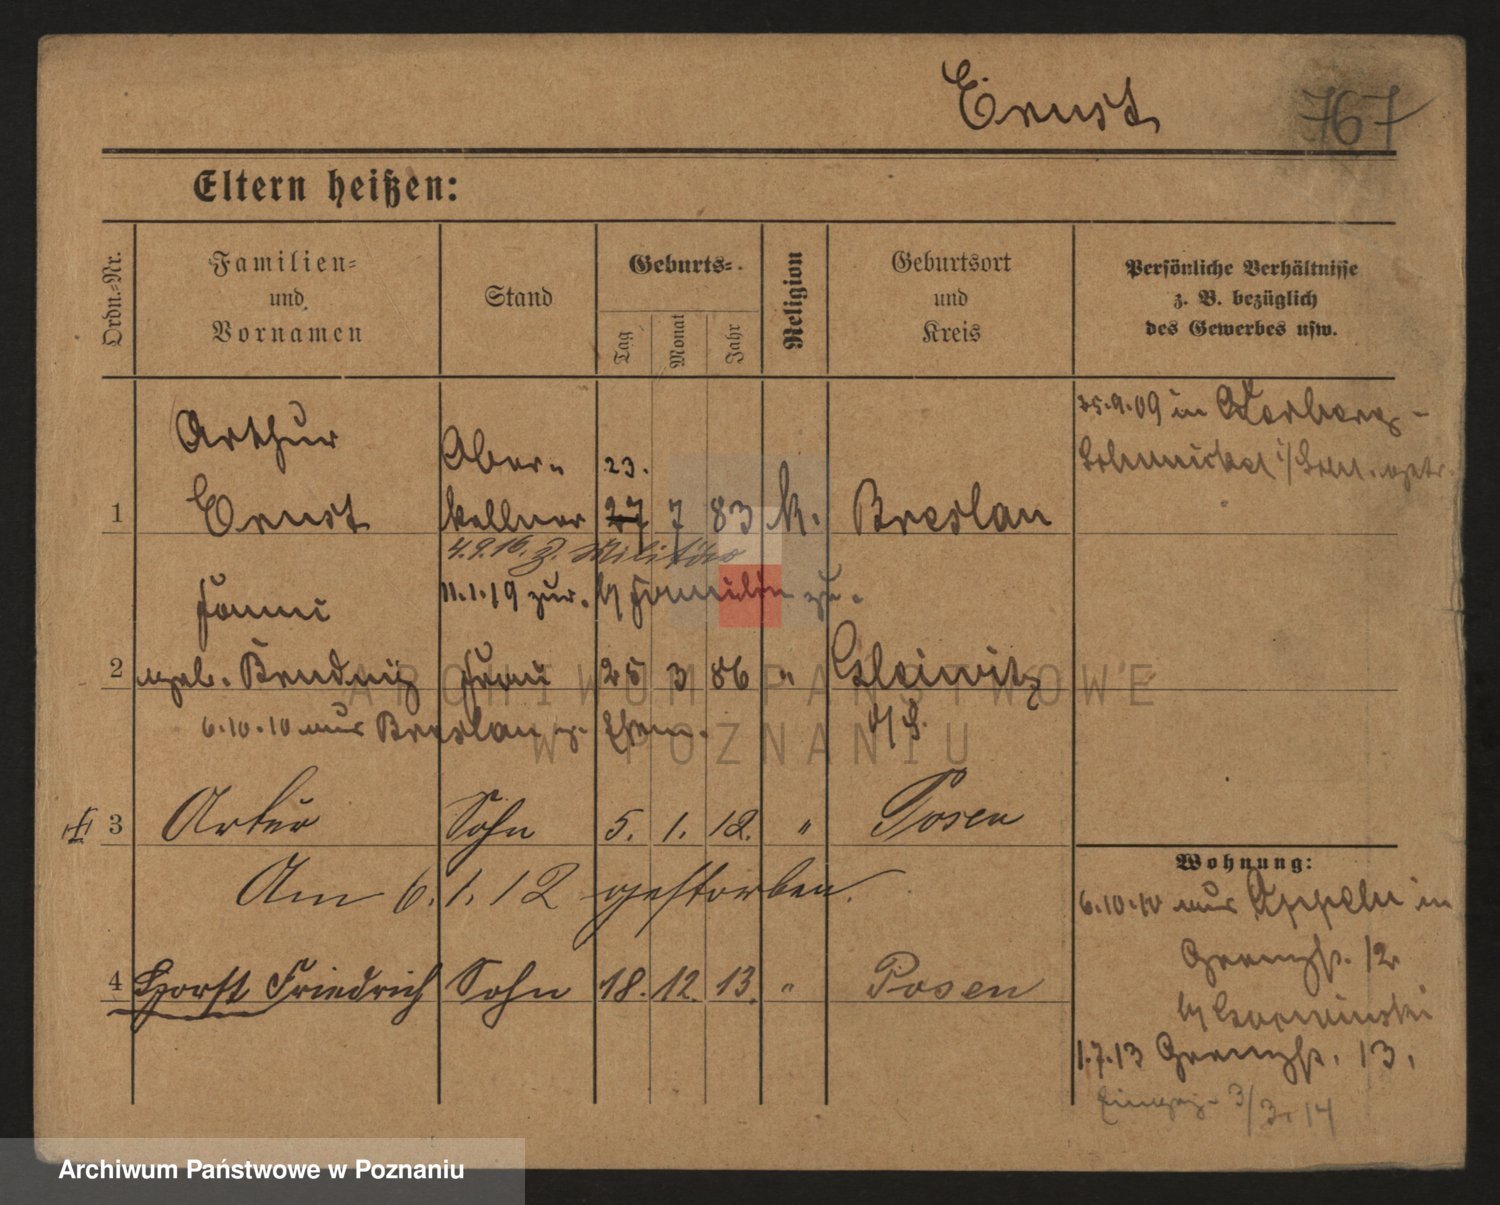 Ernst 767
Eltern heißen:
Ordn.-Nr.
Familien-
und
Vornamen
Stand
Geburts-
Tag
Monat
Jahr
Religion
Geburtsort
und
Kreis
Persönliche Verhältnisse
z. B. bezüglich
des Gewerbes usw.
Arthur Ober-
1 Ernst kellner 23. 27 7 83 k. Breslau
25.9.09 in
4.9.16. z. Militär
11.1.19 zur. b/ Familie
Fanni
2 geb. Frau 25 3 86 " Gleiwitz
6.10.10 aus Breslau z. Ehem. O/S.
3 Artur Sohn 5. 1. 12. " Posen
Am 6.1.12 gestorben.
4 Horst Friedrich Sohn 18. 12. 13. " Posen
Wohnung:
6.10.10 aus Oppeln in
12
b/
1.7.13 13.
3/3. 14
ARCHIWUM PAŃSTWOWE
W POZNANIU
Archiwum Państwowe w Poznaniu